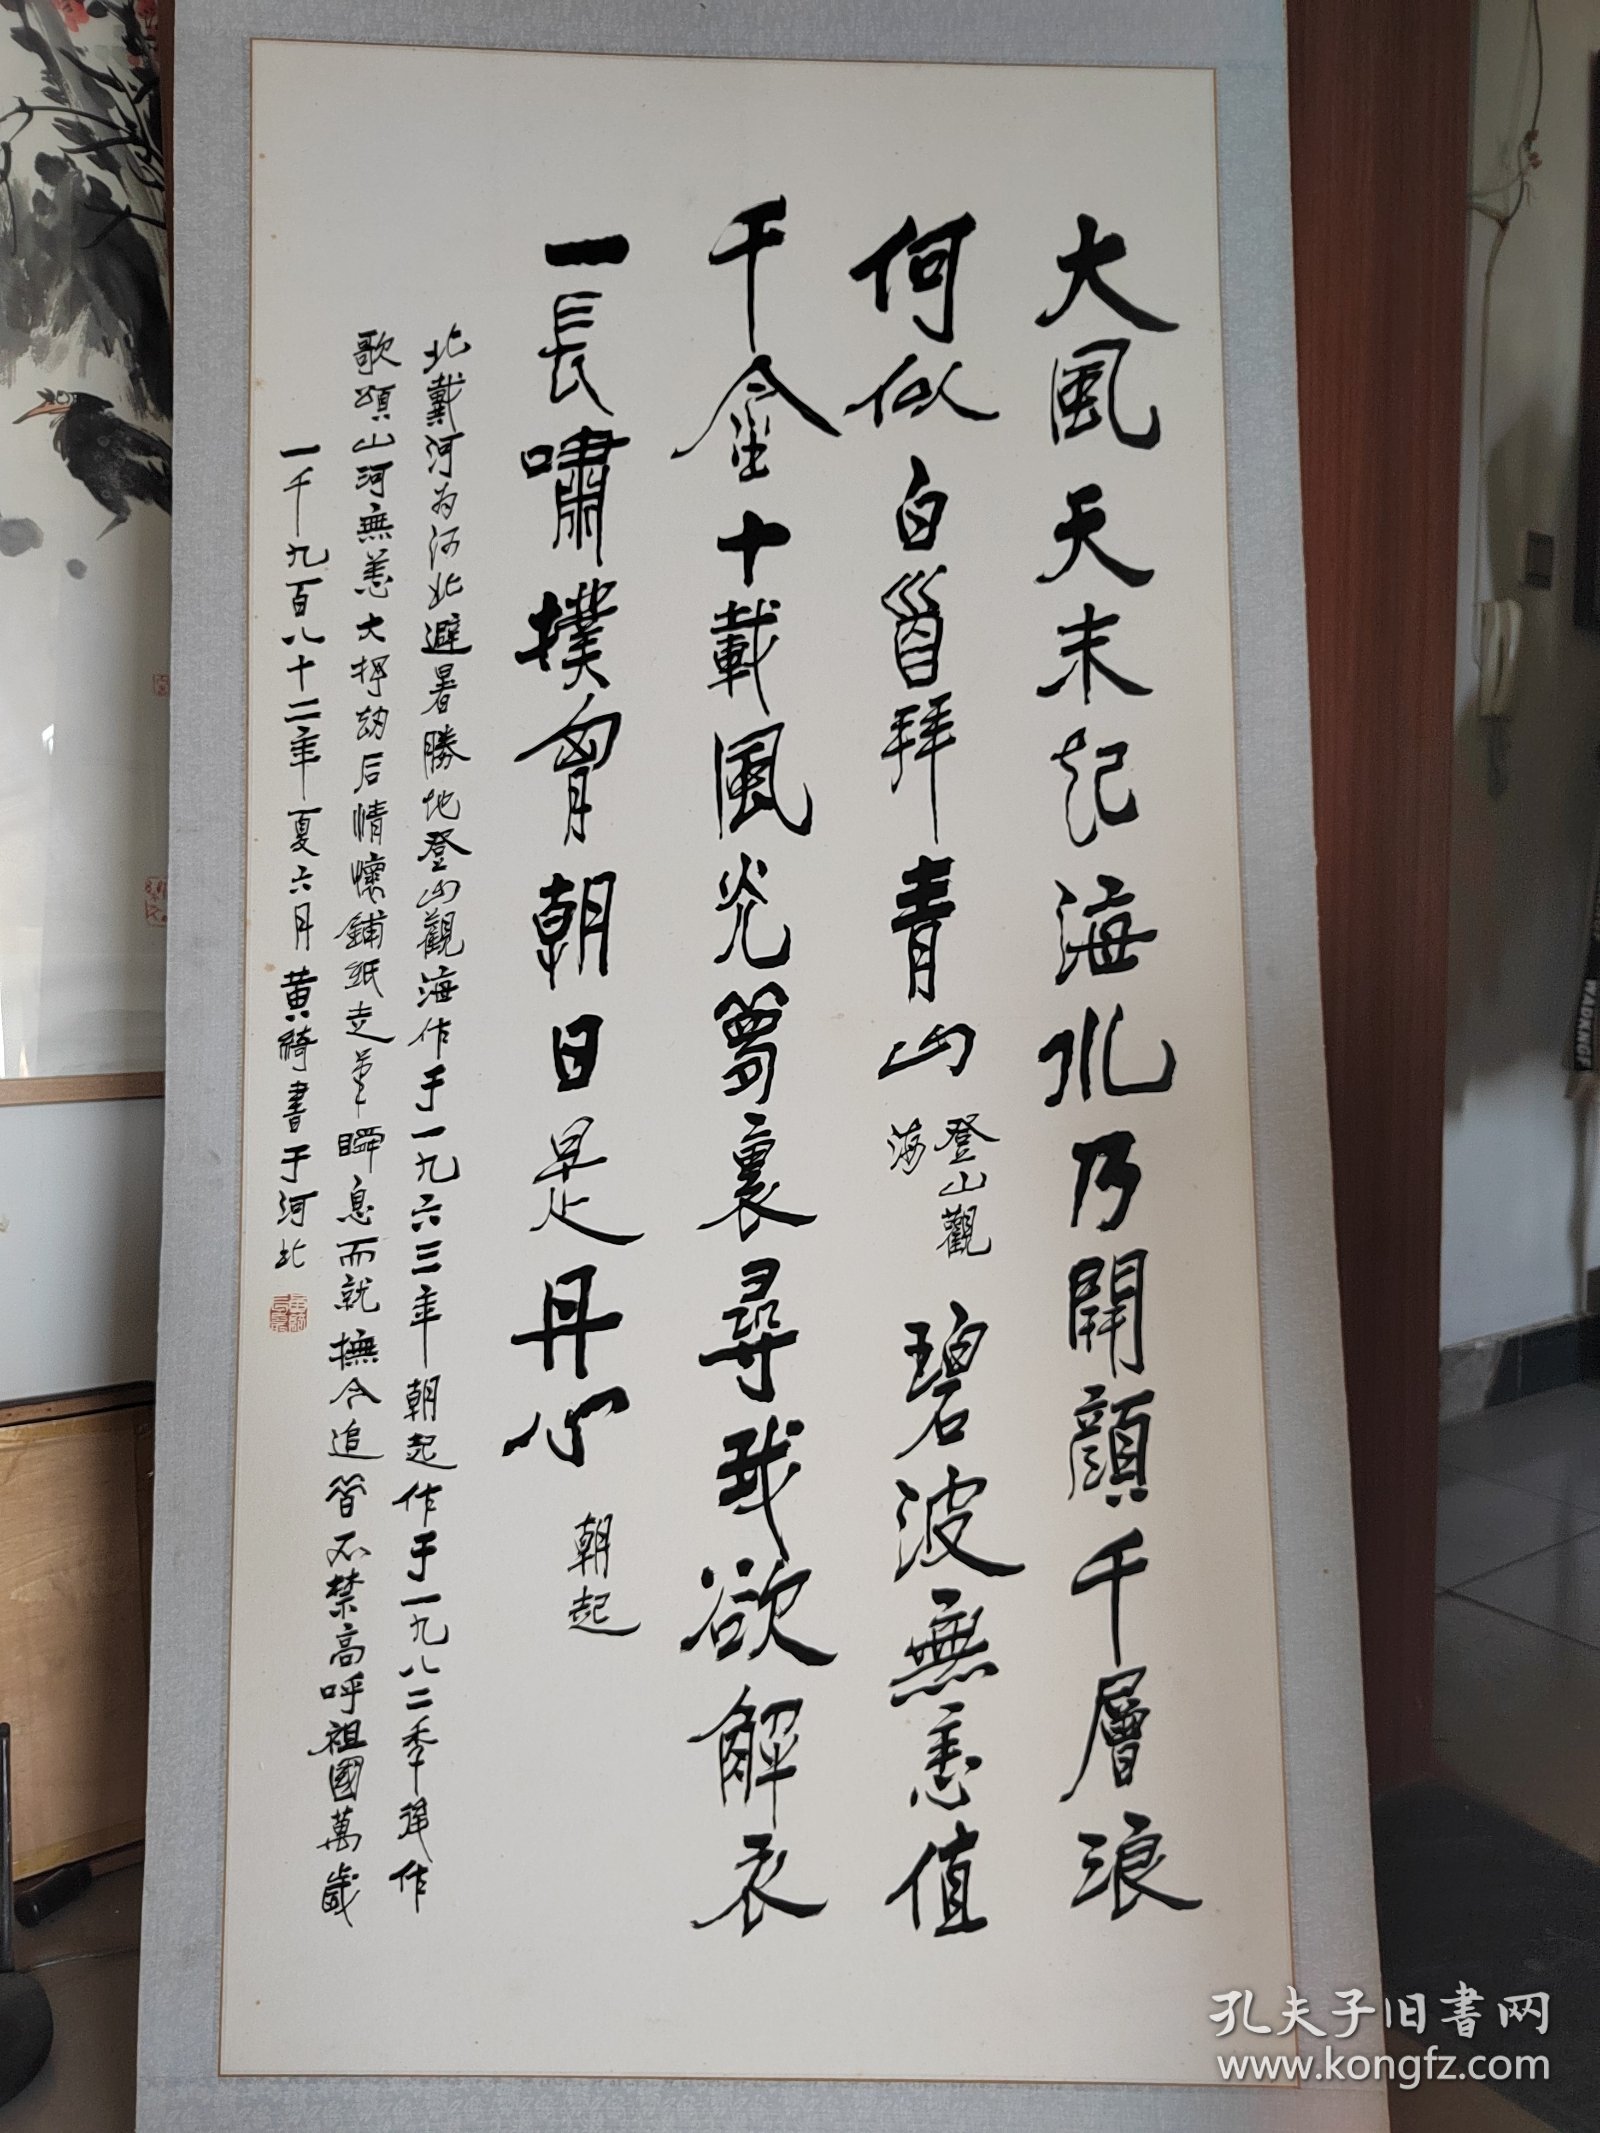 大風天末起海水乃開顔千層浪
何似白首拜青山 登山觀海 碧波無恙值
千金十載風光夢裏尋我欲解衣
一長嘯撲胷朝日是丹心 朝起
北戴河为河北避暑勝地登山觀海作于一九六三年朝起作于一九八二季 作
歌頌山河無恙大 劫后情懷鋪紙走筆瞬息而就撫今追昔不禁高呼祖國萬歲
一千九百八十二年夏六月黄綺書于河北
孔夫子旧書网
www.kongfz.com
WADKNGF